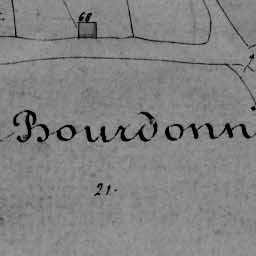 68
Bourdonn
21.